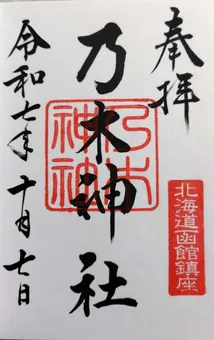 奉拝
北海道函館鎮座
乃木神社
乃木神社
令和七年十月七日